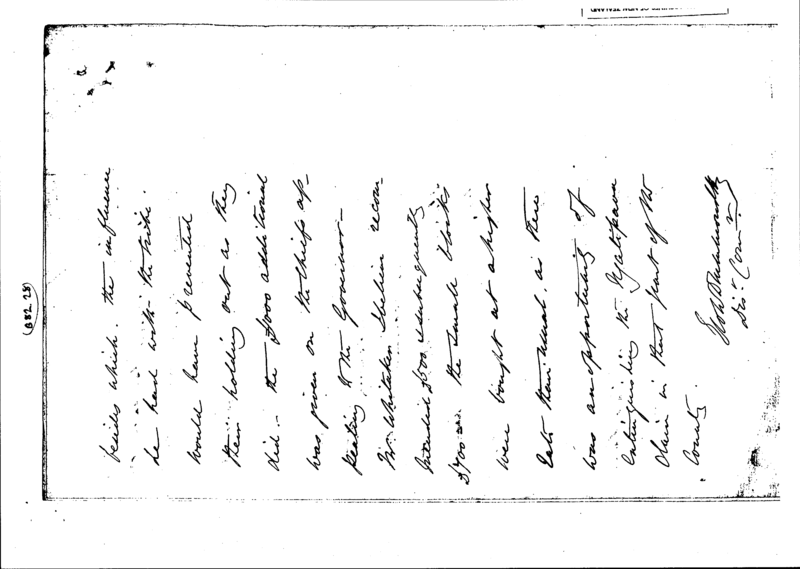 besides which the influence
he had with the tribe
would have prevented
them holding out as they
did – the £1000 additional
was given on the Chiefs ap-
pealing to the Governor –
Mr Whitaker Shelien recom-
mended £500 subsequently
£700
the small blocks
were bought at a higher
rate than usual, as there
was an opportunity of
extinguishing the Ngatipaoa
Claim in that part of the
County.
Dist Comr
(B82 28)
OF NEW ZEALAND